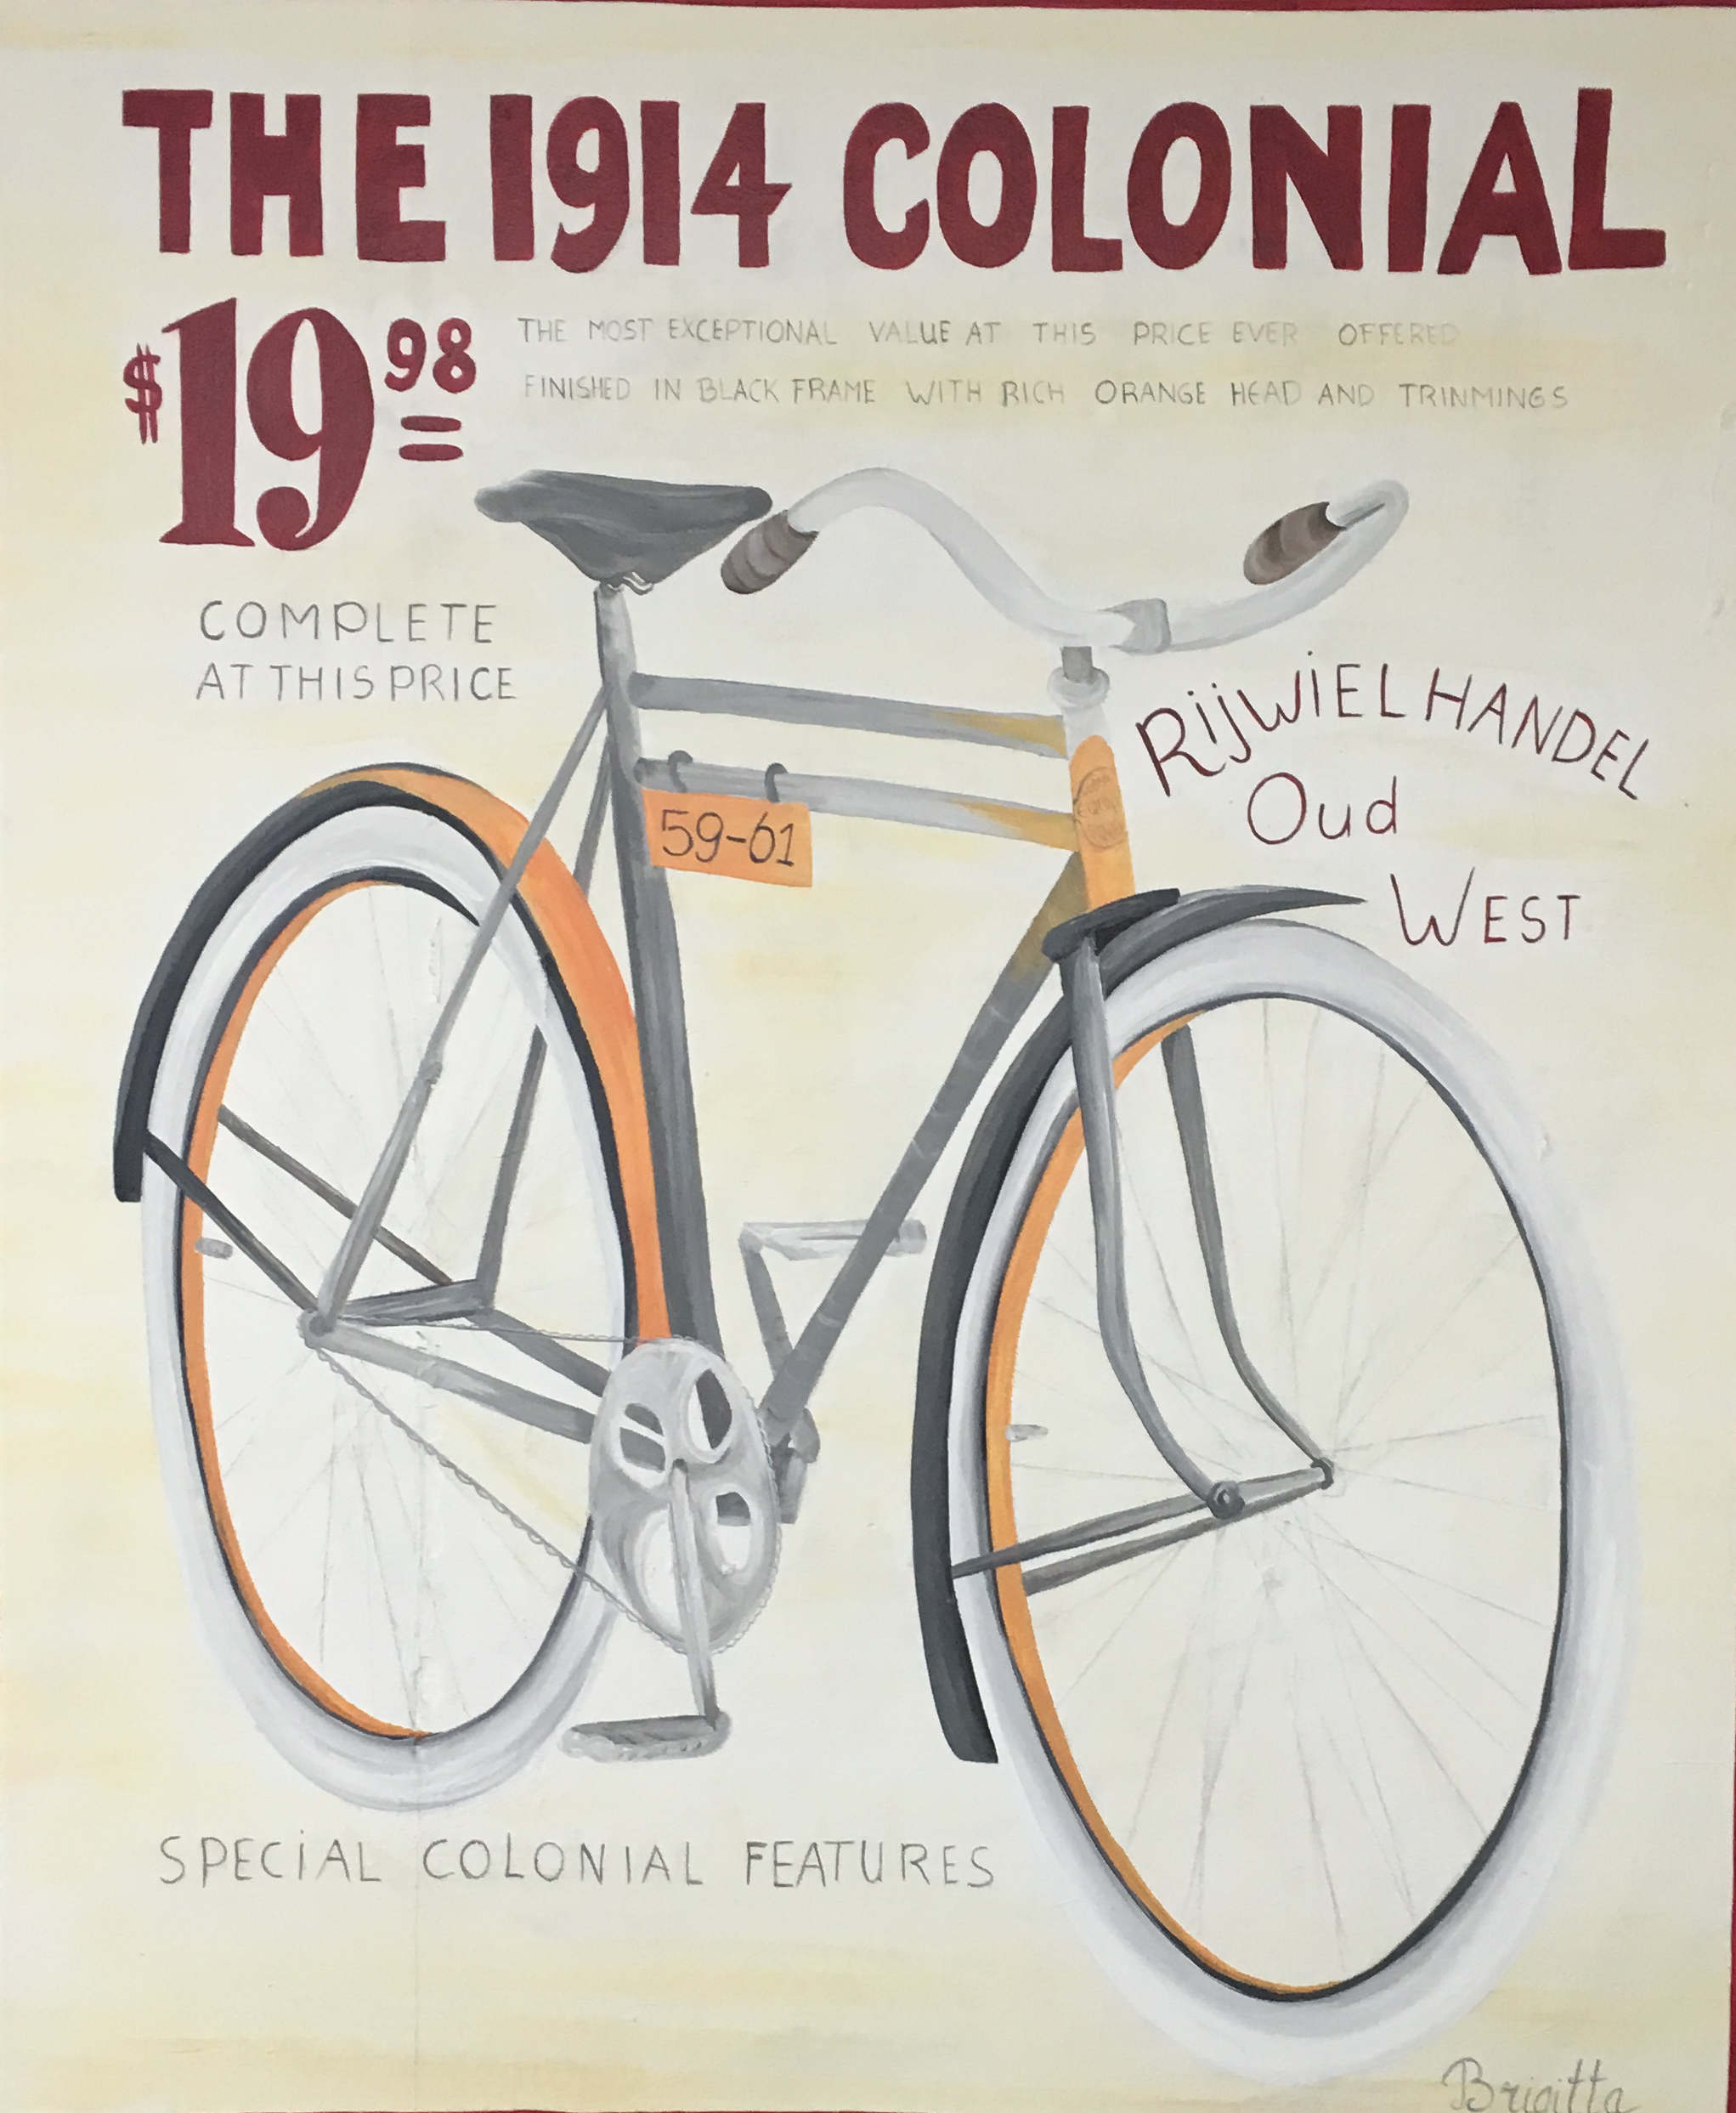 THE 1914 COLONIAL
$19 98
THE MOST EXCEPTIONAL VALUE AT THIS PRICE EVER OFFERED
FINISHED IN BLACK FRAME WITH RICH ORANGE HEAD AND TRINMINGS
COMPLETE
AT THIS PRICE
RijWiEL HANDEL
Oud
WEST
59-61
SPECiAL COLONIAL FEATURES
Brigitta